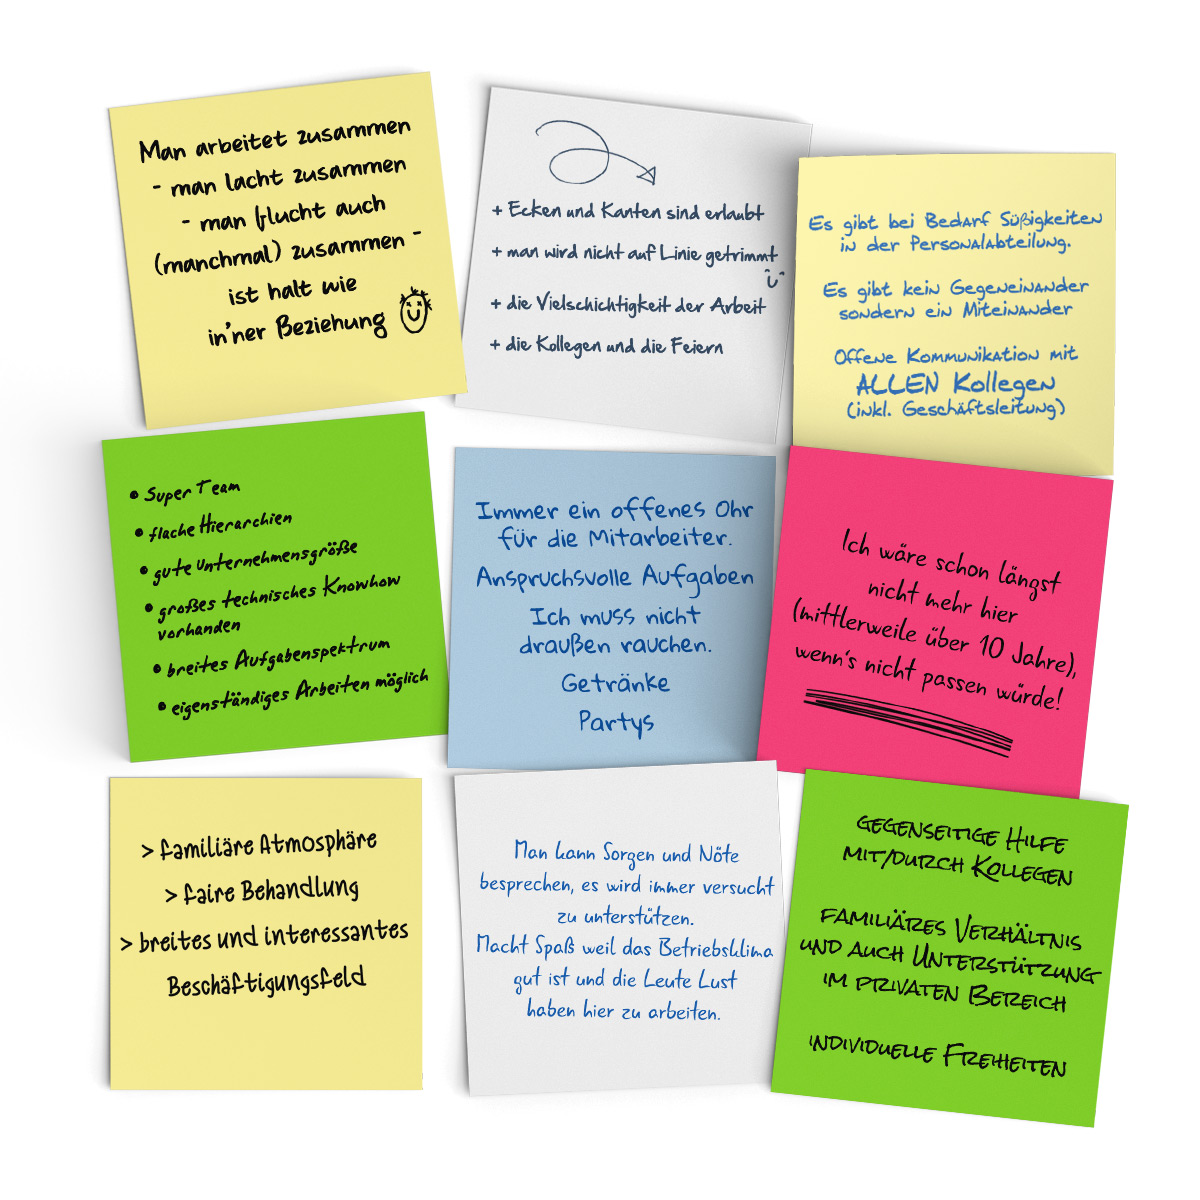 Man arbeitet zusammen
- man lacht zusammen
- man flucht auch
(manchmal) zusammen -
ist halt wie
in'ner Beziehung
+ Ecken und Kanten sind erlaubt
+ man wird nicht auf Linie getrimmt
+ die Vielschichtigkeit der Arbeit
+ die Kollegen und die Feiern
Es gibt bei Bedarf Süßigkeiten
in der Personalabteilung.
Es gibt kein Gegeneinander
sondern ein Miteinander
Offene Kommunikation mit
ALLEN Kollegen
(inkl. Geschäftsleitung)
• Super Team
• flache Hierarchien
• gute Unternehmensgröße
• großes technisches Knowhow
vorhanden
• breites Aufgabenspektrum
• eigenständiges Arbeiten möglich
Immer ein offenes Ohr
für die Mitarbeiter.
Anspruchsvolle Aufgaben
Ich muss nicht
draußen rauchen.
Getränke
Partys
Ich wäre schon längst
nicht mehr hier
(mittlerweile über 10 Jahre),
wenn's nicht passen würde!
> familiäre Atmosphäre
> faire Behandlung
> breites und interessantes
Beschäftigungsfeld
Man kann Sorgen und Nöte
besprechen, es wird immer versucht
zu unterstützen.
Macht Spaß weil das Betriebsklima
gut ist und die Leute Lust
haben hier zu arbeiten.
GEGENSEITIGE HILFE
MIT/DURCH KOLLEGEN
FAMILIÄRES VERHÄLTNIS
UND AUCH UNTERSTÜTZUNG
IM PRIVATEN BEREICH
INDIVIDUELLE FREIHEITEN